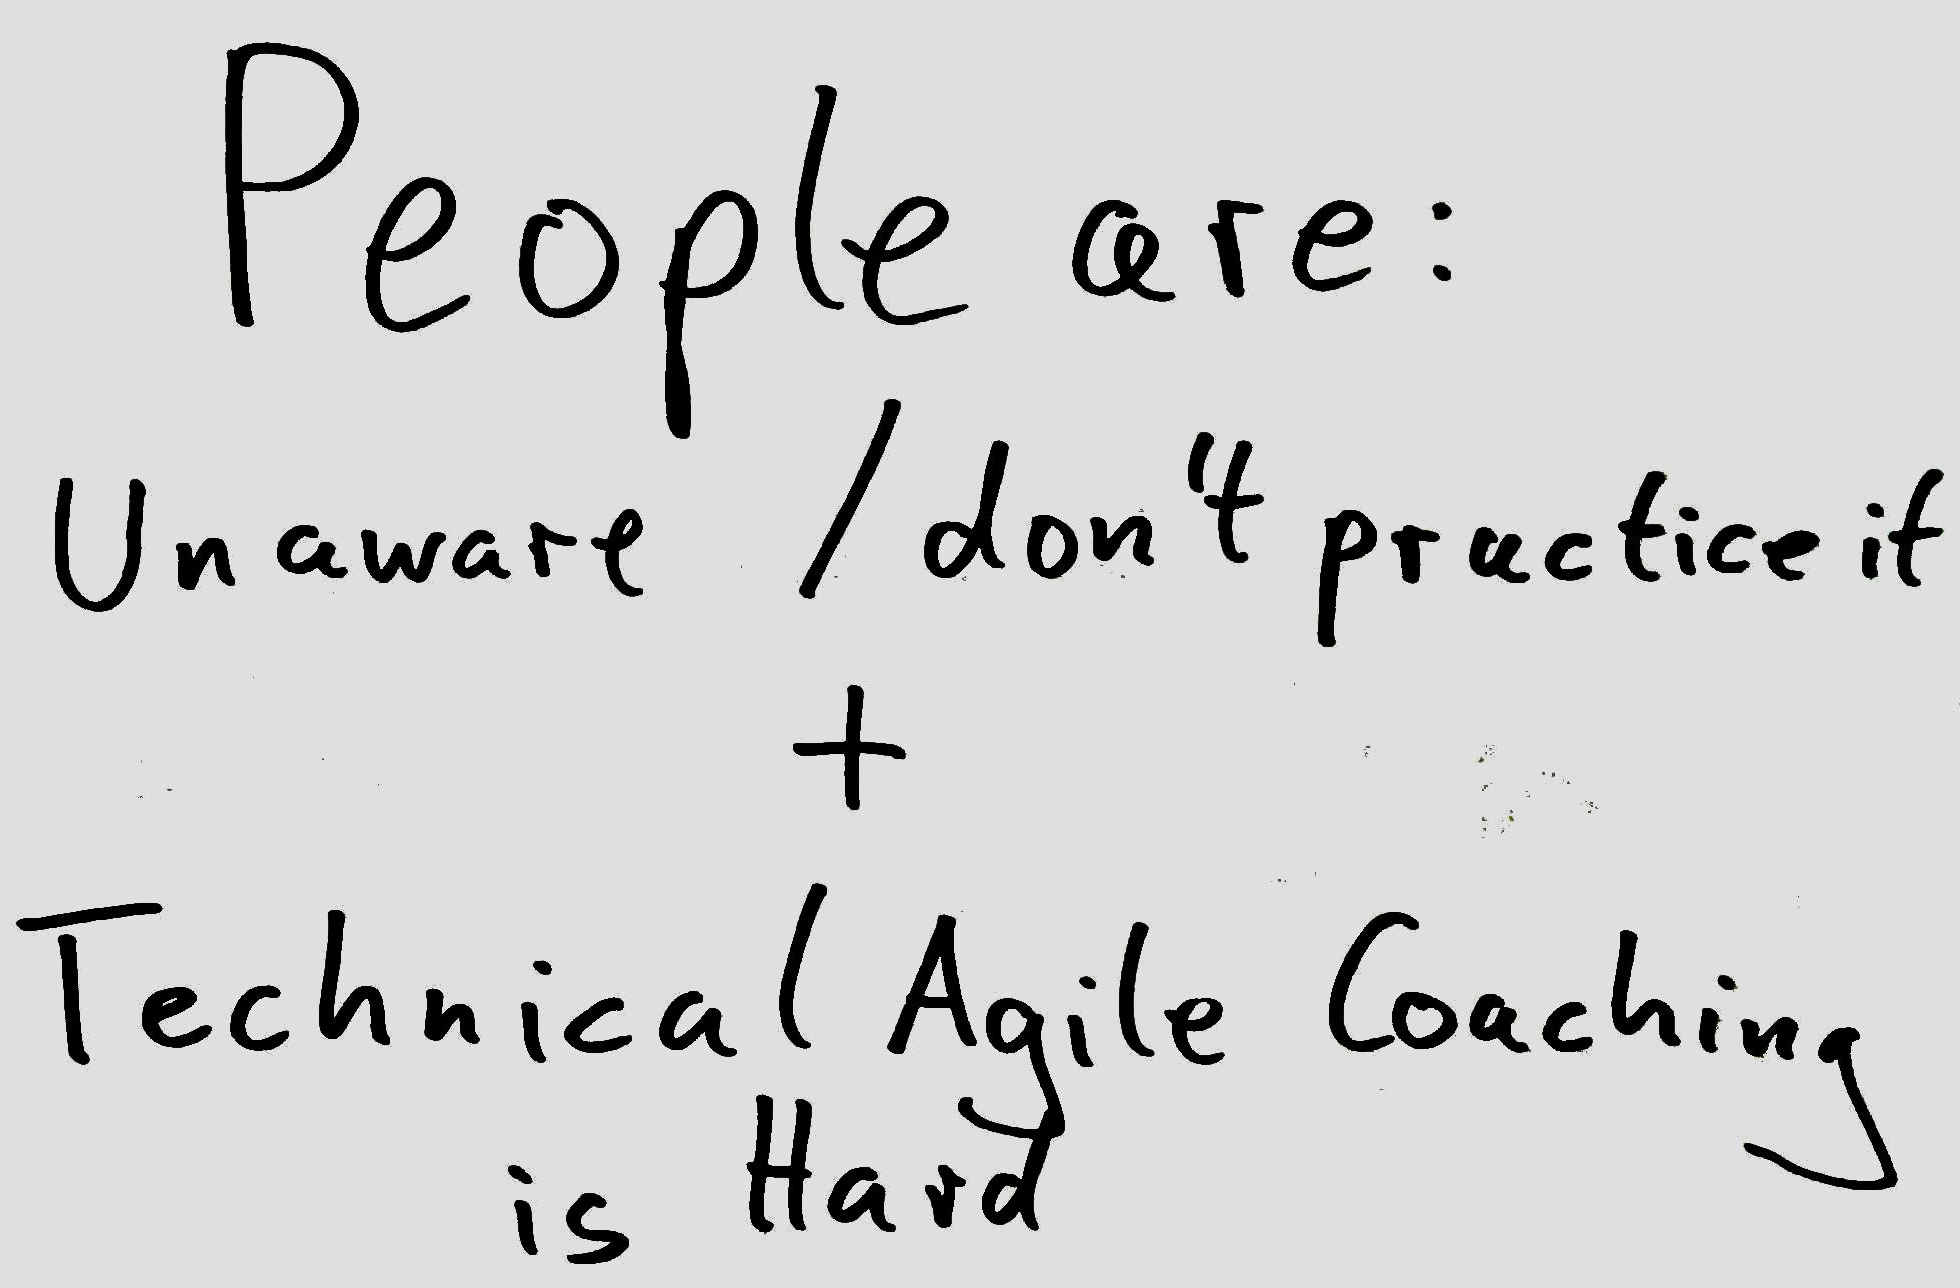 People are:
Unaware / don't practice it
+
Technical Agile Coaching
is Hard